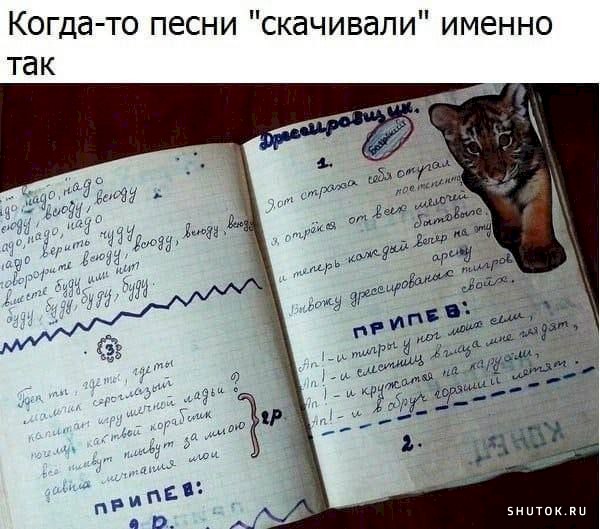 Когда-то песни "скачивали" именно
так
надо, надо
всюду, всюду, всюду
надо, надо, надо
надо верить чуду
всюду, всюду, всюду
вместе буду или нет
буду, буду, буду, буду.
3
Где ты, где ты, где ты
мальчик сероглазый
капитан игрушечной ладьи?
почему как твой кораблик
всё плывут плывут за мною
давние мечтания мои
2р.
ПРИПЕВ:
2 р.
Дрессировщик.
1.
Я от страха себя отучал
постепенно
я отрёкся от всех мелочей
бытовых.
и теперь каждый вечер на эту
арену
Вывожу дрессированых тигров
своих.
ПРИПЕВ:
Ап! - и тигры у ног моих сели,
Ап! - и с лестниц в глаза мне глядят,
Ап! - и кружатся на карусели,
Ап! - и в обруч горящий летят.
2.
КОНЕЦ
SHUTOK.RU